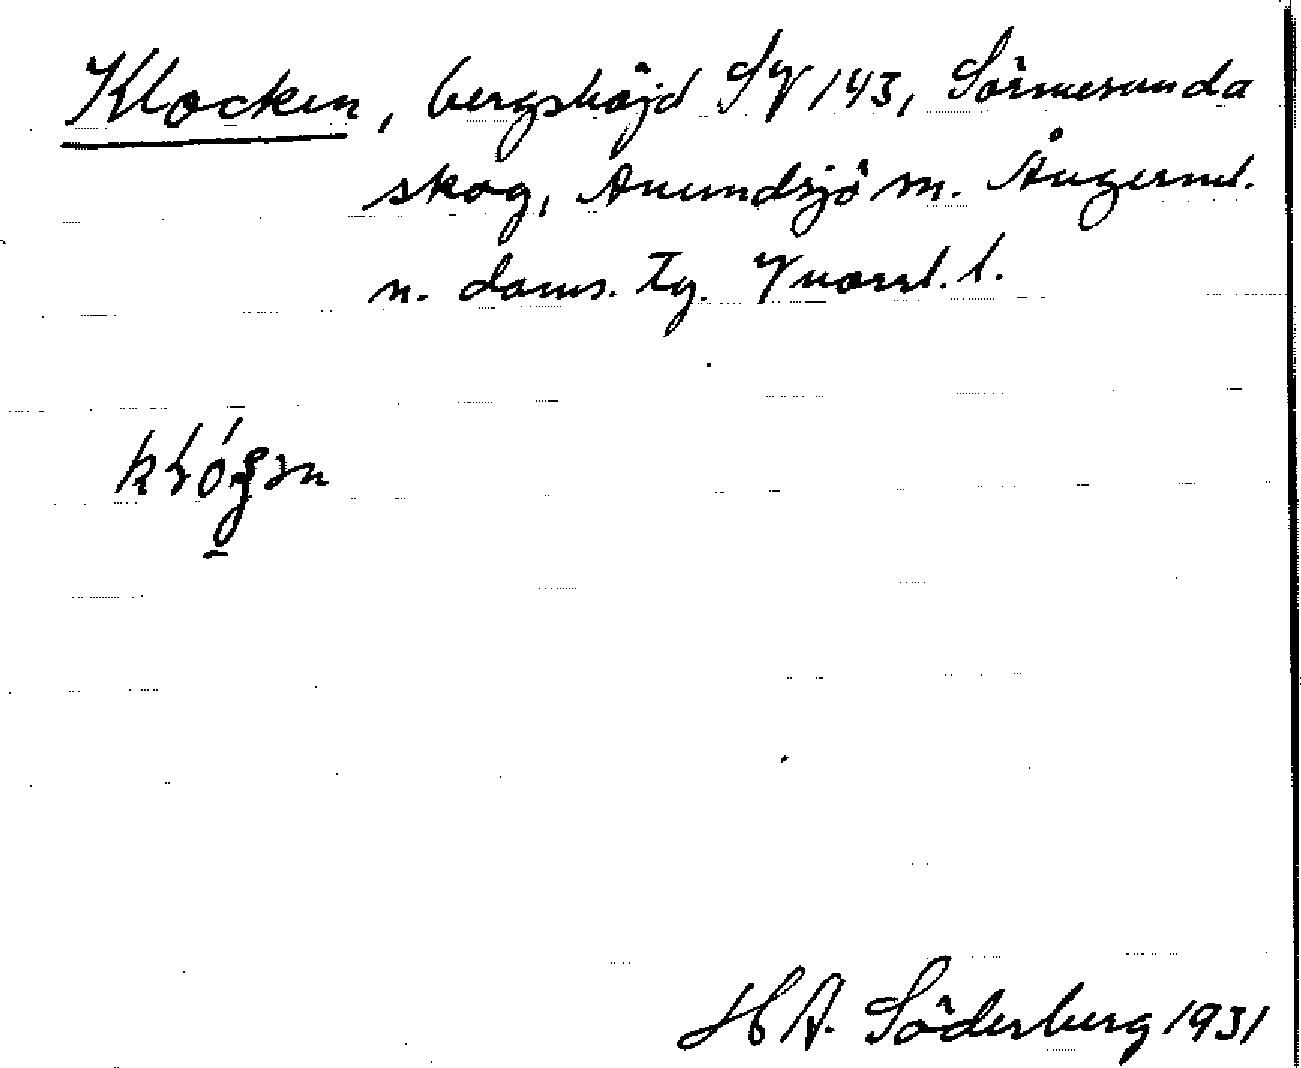 Klocken, bergshöjd SV 143, Sörmesunda
skog, Anundsjö sn. Ångerml.
n. doms. tg. Vnorrl. l.
H A. Söderberg 1931